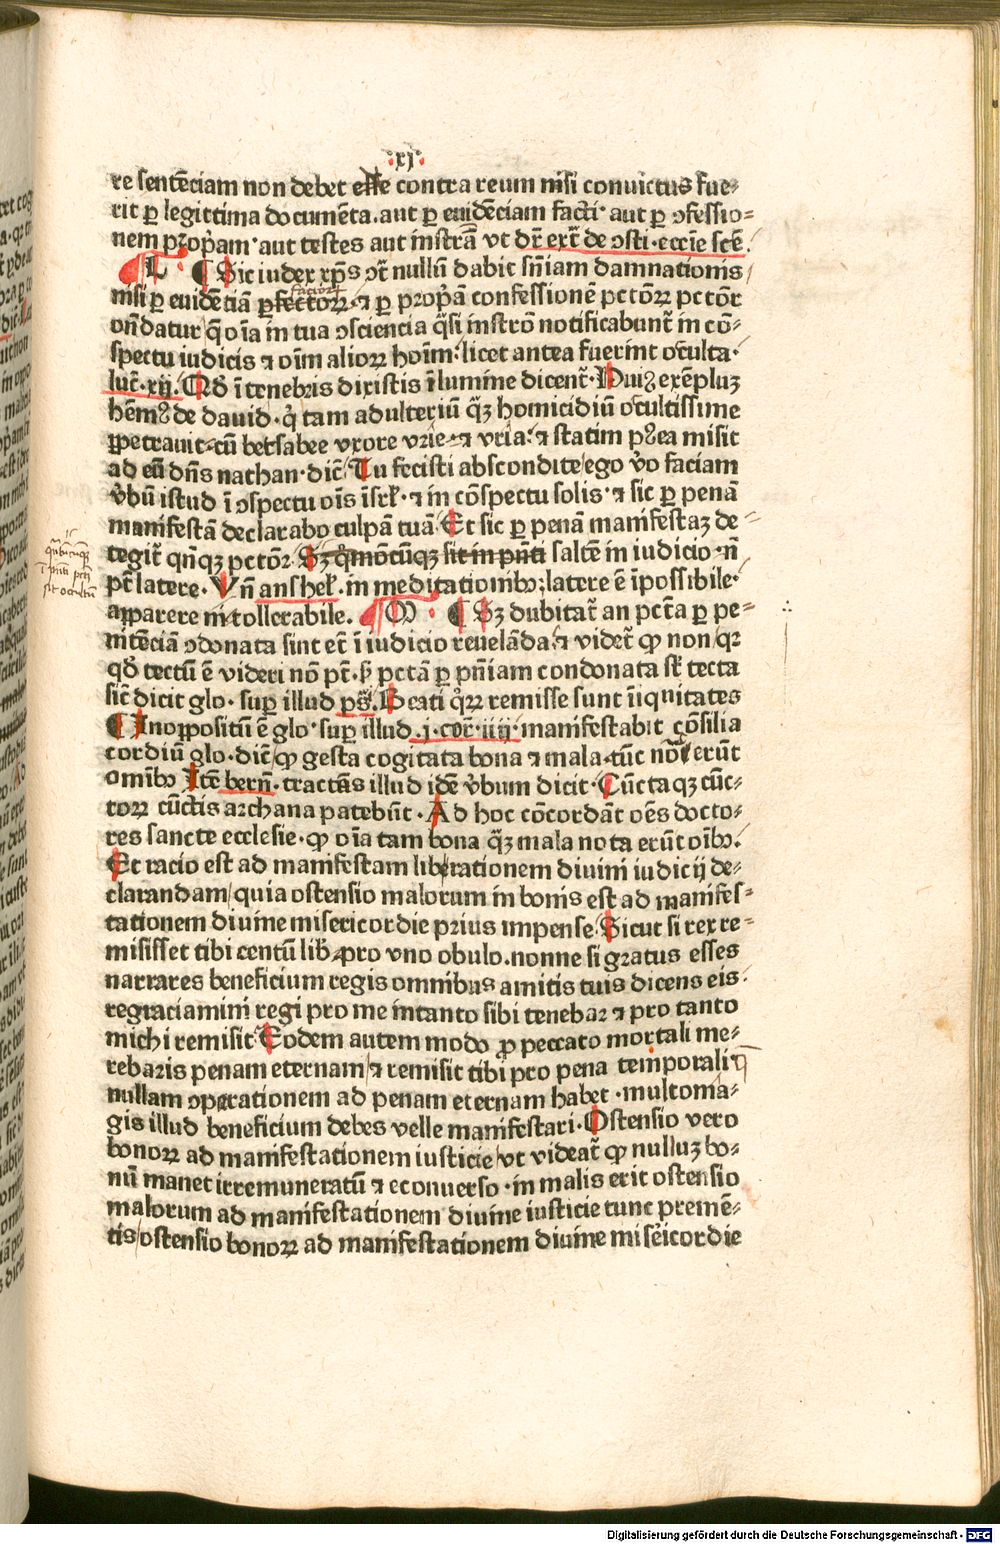 xj
re sentēciam non debet esse contra reum nisi conuictus fue⸗
rit ꝑ legittima documēta. aut ꝑ euidēciam facti aut ꝑ ꝯfessio⸗
nem propͥam aut testes aut instrā vt dr̄ ext̄ de ꝯsti. eccīe scē.
L ¶ Sic iudex xp̄s ꝯt̄ nullū dabit sn̄iam damnationis
nisi ꝑ euidēciā ꝑfectoꝝ ⁊ ꝑ propͥā confessionē pctōꝝ pctōr
on̄datur qͦ oīa in tua ꝯsciencia qͣsi instrō notificabunt̄ in cō⸗
spectu iudicis ⁊ oīm alioꝝ hoīm: licet antea fuerint occulta.
luc̄. xij. Qd̄ ī tenebris dixistis ī lumine dicent̄. Huiꝰ exēpluꝫ
hēmꝰ de dauid. qͥ tam adulteriū qͣꝫ homicidiū occultissime
ꝑpetrauit cū betsabee vxore vrie ⁊ vria. ⁊ statim pꝰea misit
ad eū dn̄s nathan. dic̄. Tu fecisti abscondite ego v̄o faciam
v̄bū istud ī ꝯspectu oīs isrl̄. ⁊ in cōspectu solis. ⁊ sic ꝑ penā
manifestā declarabo culpā tuā. Et sic ꝑ penā manifestaꝫ de⸗
tegit̄ qn̄qꝫ pctōr. Sꝫ qͣmōcūqꝫ sit in pn̄ti saltē in iudicio n̄
pt̄ latere. Vn̄ anshel̄. in meditationibꝰ: latere ē īpossibile.
apparere ītollerabile. M ¶ Sꝫ dubitat̄ an pctā ꝑ pe⸗
nitēciā ꝯdonata sint et̄ ī iudicio reuelāda. ⁊ videt̄ ꝙ non qꝛ
qd̄ tectū ē videri nō pt̄. sꝫ pctā ꝑ pn̄iam condonata sūt tecta
sic̄ dicit glo. suꝑ illud ps̄. Beati qͦꝝ remisse sunt īiquitates
¶ In oppositū ē glo. suꝑ illud. j. cor̄. iiij. manifestabit cōsilia
cordiū glo. dic̄ ꝙ gesta cogitata bona ⁊ mala tūc nota erūt
omībꝰ Itē bern̄. tractās illud idē v̄bum dicit. Cūctaqꝫ cūc⸗
toꝝ cūctis archana patebūt. Ad hoc cōcordāt oēs docto⸗
res sancte ecclesie. ꝙ oīa tam bona qͣꝫ mala nota erūt oībꝰ.
Et racio est ad manifestam liberationem diuini iudicij de⸗
clarandam quia ostensio malorum in bonis est ad manifes⸗
tationem diuine misericordie prius impense. Sicut si rex re⸗
misisset tibi centū lib. pro vno obulo. nonne si gratus esses
narrares beneficium regis omnibus amitis tuis dicens eis.
regraciamini regi pro me intanto sibi tenebar ⁊ pro tanto
michi remisit. Eodem autem modo ꝓ peccato mortali me⸗
rebaris penam eternam ⁊ remisit tibi pro pena temporali q̄
nullam ꝯperationem ad penam eternam habet. multo ma⸗
gis illud beneficium debes velle manifestari. Ostensio vero
bonoꝝ ad manifestationem iusticie vt videat̄ ꝙ nulluꝫ bo⸗
nū manet irremuneratū ⁊ econuerso. in malis erit ostensio
malorum ad manifestationem diuine iusticie tunc premē⸗
tis ostensio bonoꝝ ad manifestationem diuine misericordie
Digitalisierung gefördert durch die Deutsche Forschungsgemeinschaft - DFG